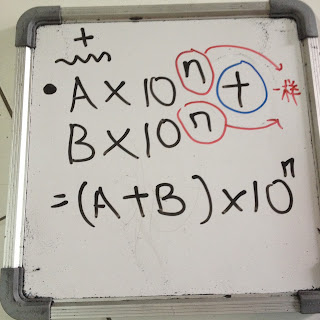 +
• A × 10ⁿ + 一樣
B × 10ⁿ
= (A + B) × 10ⁿ